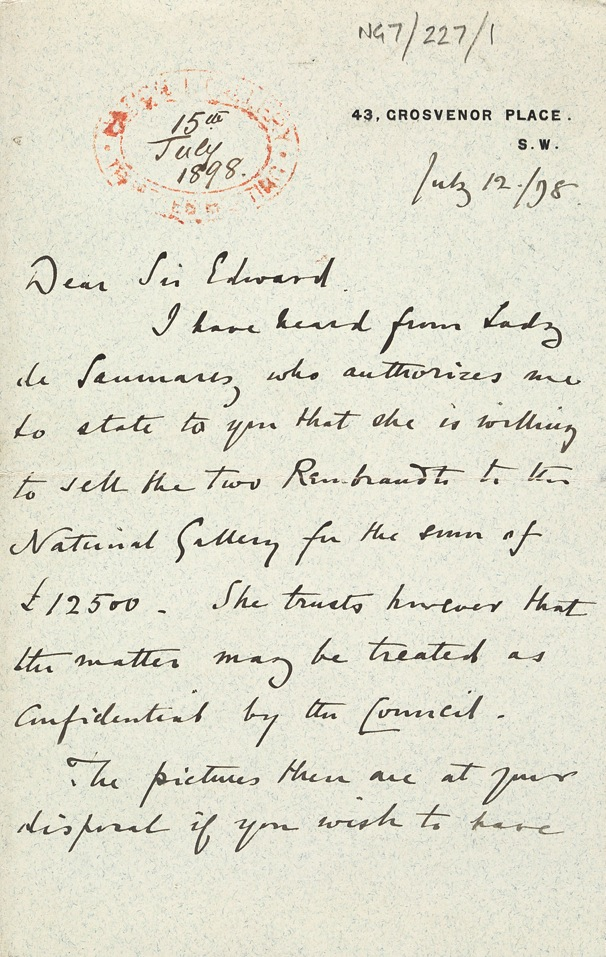 NG7/227/1
15th
July
1898.
43, GROSVENOR PLACE.
S.W.
July 12./98.
Dear Sir Edward
I have heard from Lady
de Saumarez, who authorizes me
to state to you that she is willing
to sell the two Rembrandts to the
National Gallery for the sum of
£12500. She trusts however that
the matter may be treated as
confidential by the Council.
The pictures then are at your
disposal if you wish to have